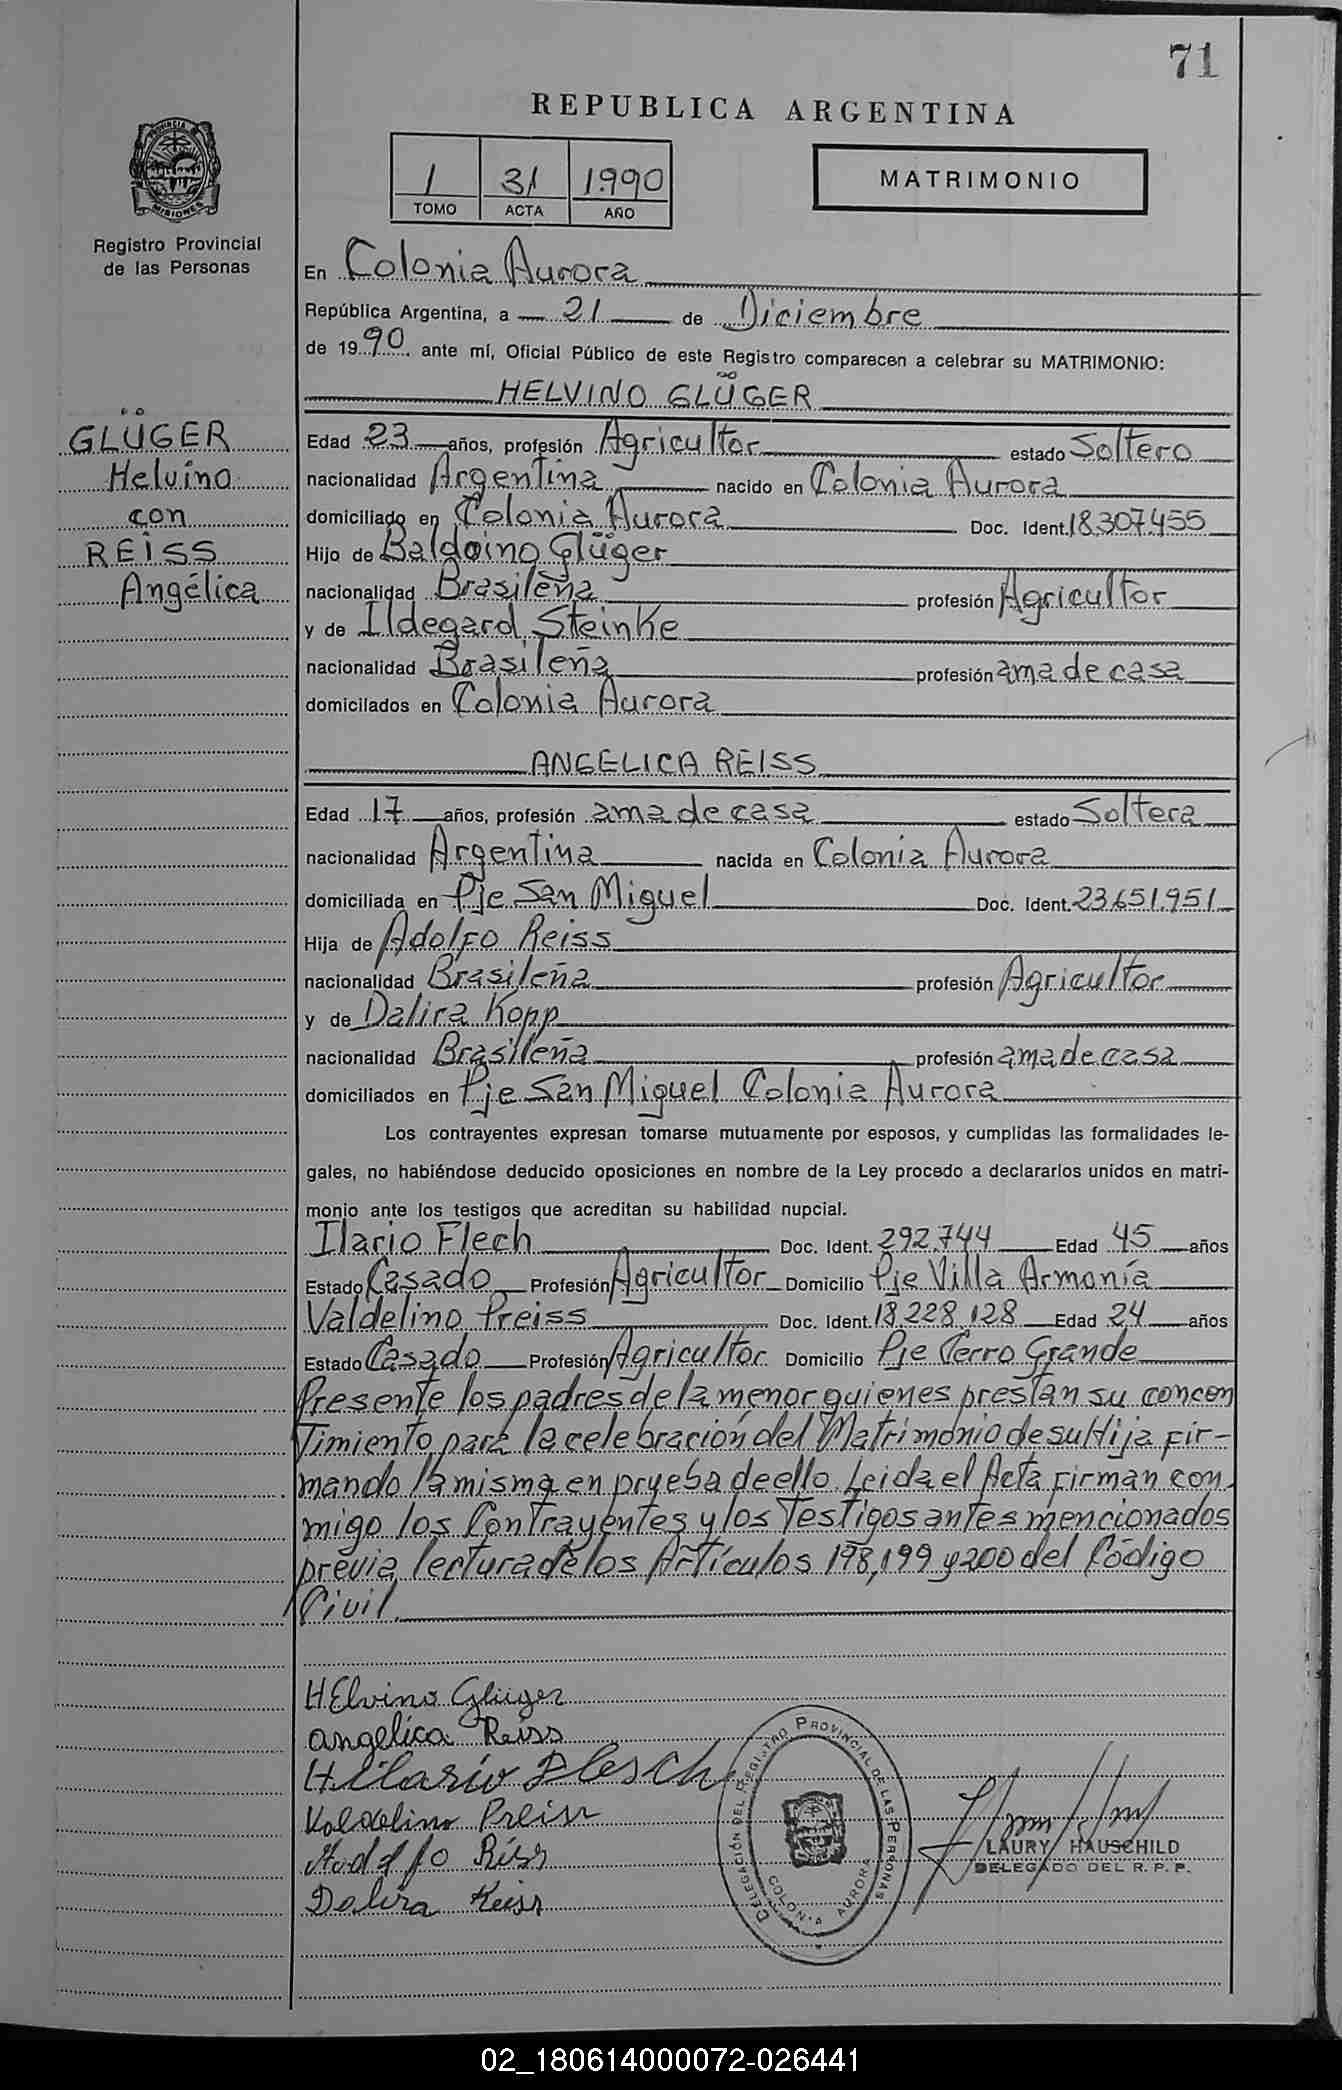 71
REPUBLICA ARGENTINA
1 31 1990
TOMO ACTA AÑO
MATRIMONIO
PROVINCIA DE
MISIONES
Registro Provincial
de las Personas
En Colonia Aurora
República Argentina, a 21 de Diciembre
de 1990. ante mí, Oficial Público de este Registro comparecen a celebrar su MATRIMONIO:
HELVINO GLÜGER
GLÜGER
Helvino
con
REISS
Angélica
Edad 23 años, profesión Agricultor estado Soltero
nacionalidad Argentina nacido en Colonia Aurora
domiciliado en Colonia Aurora Doc. Ident. 18.307.455
Hijo de Baldoino Glüger
nacionalidad Brasileña profesión Agricultor
y de Ildegard Steinke
nacionalidad Brasileña profesión ama de casa
domicilados en Colonia Aurora
ANGELICA REISS
Edad 17 años, profesión ama de casa estado Soltera
nacionalidad Argentina nacida en Colonia Aurora
domiciliada en Pje San Miguel Doc. Ident. 23.651.951
Hija de Adolfo Reiss
nacionalidad Brasileña profesión Agricultor
y de Dalira Kopp
nacionalidad Brasileña profesión ama de casa
domiciliados en Pje San Miguel Colonia Aurora
Los contrayentes expresan tomarse mutuamente por esposos, y cumplidas las formalidades le-
gales, no habiéndose deducido oposiciones en nombre de la Ley procedo a declararlos unidos en matri-
monio ante los testigos que acreditan su habilidad nupcial.
Ilario Flech Doc. Ident. 292.744 Edad 45 años
Estado Casado Profesión Agricultor Domicilio Pje Villa Armonía
Valdelino Preiss Doc. Ident. 18.228.128 Edad 24 años
Estado Casado Profesión Agricultor Domicilio Pje Cerro Grande
Presente los padres de la menor quienes prestan su concen
timiento para la celebración del Matrimonio de su Hija fir-
mando la misma en prueba de ello. Leida el Acta firman con
migo los Contrayentes y los Testigos antes mencionados
previa lectura de los Artículos 198, 199 y 200 del Código
Civil.
HElvino Glüger
angelica Reiss
Hilario Flesch
Valdelino Preiss
Dalira Reiss
DELEGACIÓN DEL REGISTRO PROVINCIAL DE LAS PERSONAS
COLONIA AURORA
LAURY HAUSCHILD
DELEGADO DEL R. P. P.
02_180614000072-026441